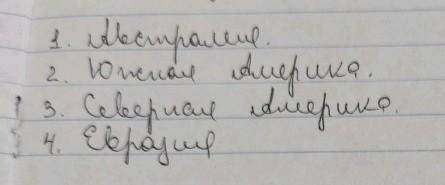 1. Австралия.
2. Южная Америка.
3. Северная Америка.
4. Евразия